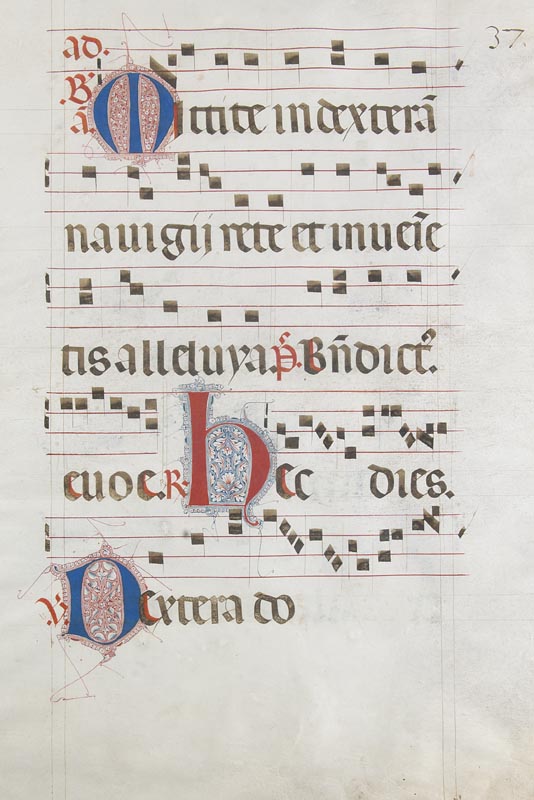 37.
ad.
.B'
a. Mittite in dexterā
nauigij rete et inueīe
tis alleluya. ps. Bn̄dict'.
euoe. R. hec dies.
V. Dextera do